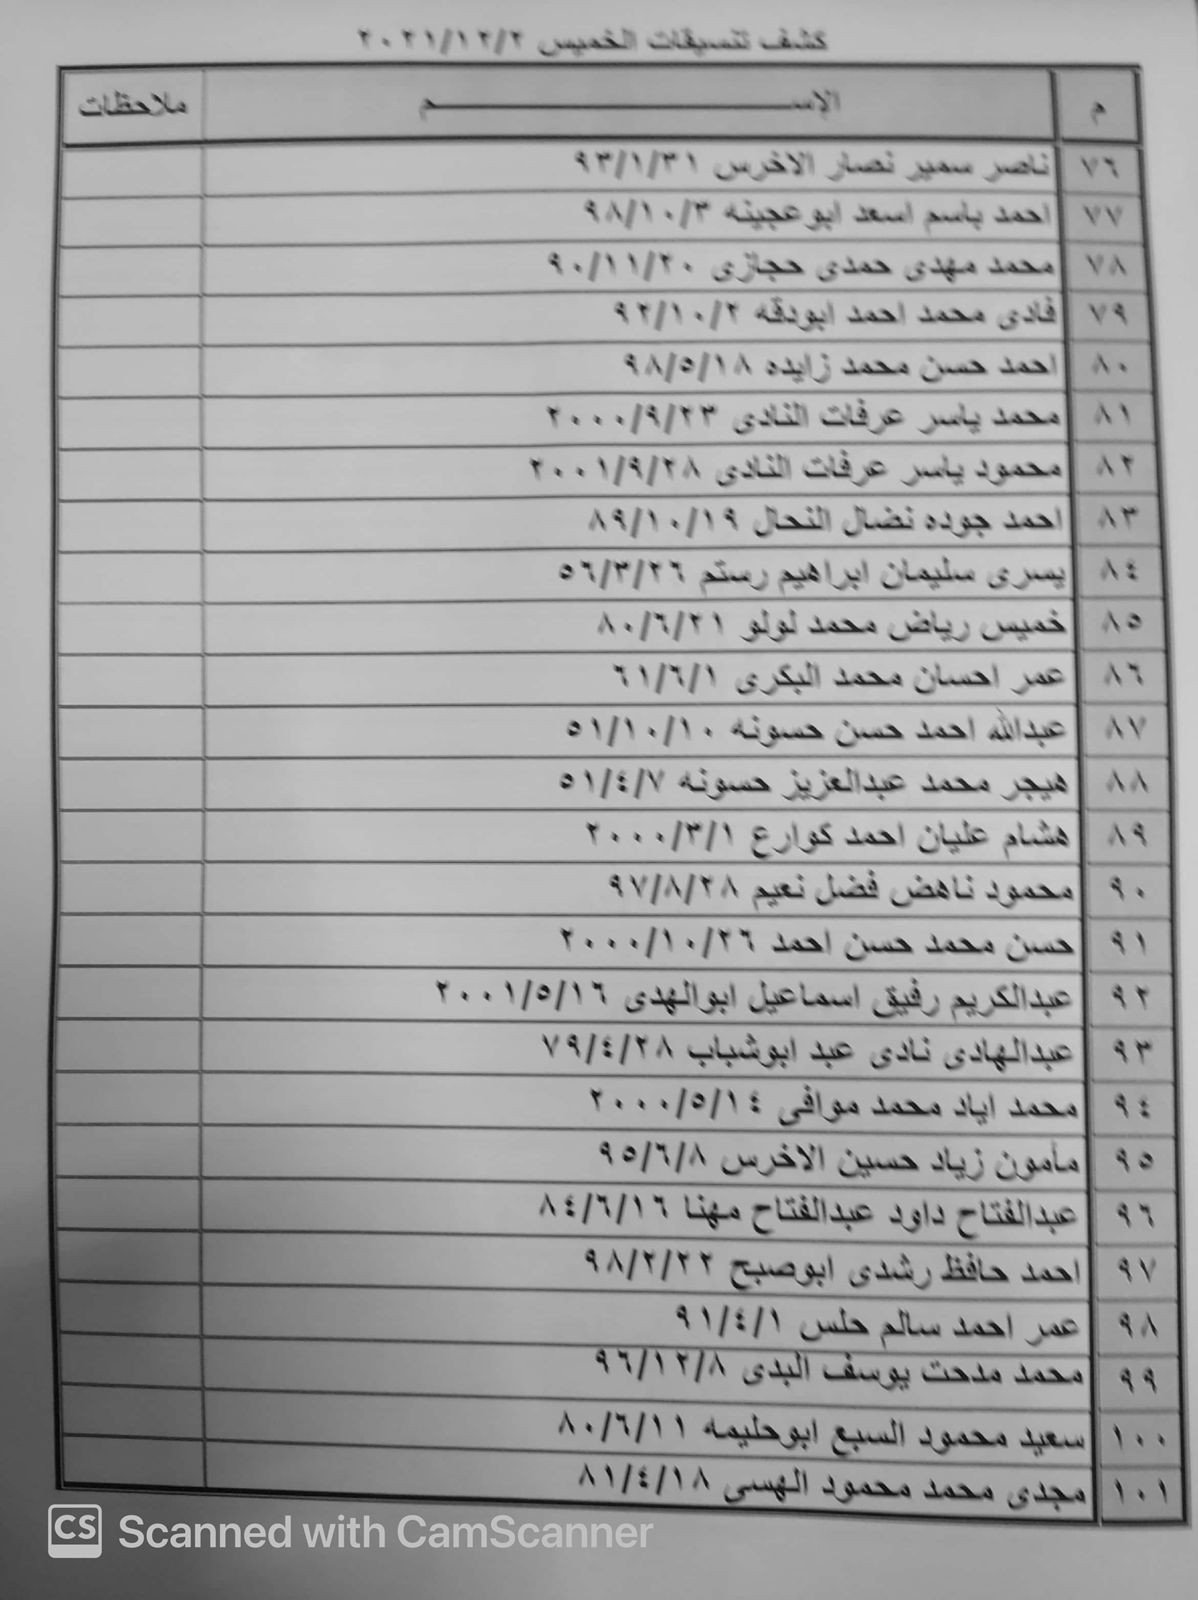 كشف تنسيقات الخميس ٢٠٢١/١٢/٢
م الاســـــــــم ملاحظات
٧٦ ناصر سمير نصار الاخرس ٩٣/١/٣١
٧٧ احمد باسم اسعد ابوعجينه ٩٨/١٠/٣
٧٨ محمد مهدى حمدى حجازى ٩٠/١١/٢٠
٧٩ فادى محمد احمد ابودقه ٩٢/١٠/٢
٨٠ احمد حسن محمد زايده ٩٨/٥/١٨
٨١ محمد ياسر عرفات النادى ٢٠٠٠/٩/٢٣
٨٢ محمود ياسر عرفات النادى ٢٠٠١/٩/٢٨
٨٣ احمد جوده نضال النحال ٨٩/١٠/١٩
٨٤ يسرى سليمان ابراهيم رستم ٥٦/٣/٢٦
٨٥ خميس رياض محمد لولو ٨٠/٦/٢١
٨٦ عمر احسان محمد البكرى ٦١/٦/١
٨٧ عبدالله احمد حسن حسونه ٥١/١٠/١٠
٨٨ هيجر محمد عبدالعزيز حسونه ٥١/٤/٧
٨٩ هشام عليان احمد كوارع ٢٠٠٠/٣/١
٩٠ محمود ناهض فضل نعيم ٩٧/٨/٢٨
٩١ حسن محمد حسن احمد ٢٠٠٠/١٠/٢٦
٩٢ عبدالكريم رفيق اسماعيل ابوالهدى ٢٠٠١/٥/١٦
٩٣ عبدالهادى نادى عبد ابوشباب ٧٩/٤/٢٨
٩٤ محمد اياد محمد موافى ٢٠٠٠/٥/١٤
٩٥ مأمون زياد حسين الاخرس ٩٥/٦/٨
٩٦ عبدالفتاح داود عبدالفتاح مهنا ٨٤/٦/١٦
٩٧ احمد حافظ رشدى ابوصبح ٩٨/٢/٢٢
٩٨ عمر احمد سالم حلس ٩١/٤/١
٩٩ محمد مدحت يوسف البدى ٩٦/١٢/٨
١٠٠ سعيد محمود السبع ابوحليمه ٨٠/٦/١١
١٠١ مجدى محمد محمود الهسى ٨١/٤/١٨
CS Scanned with CamScanner